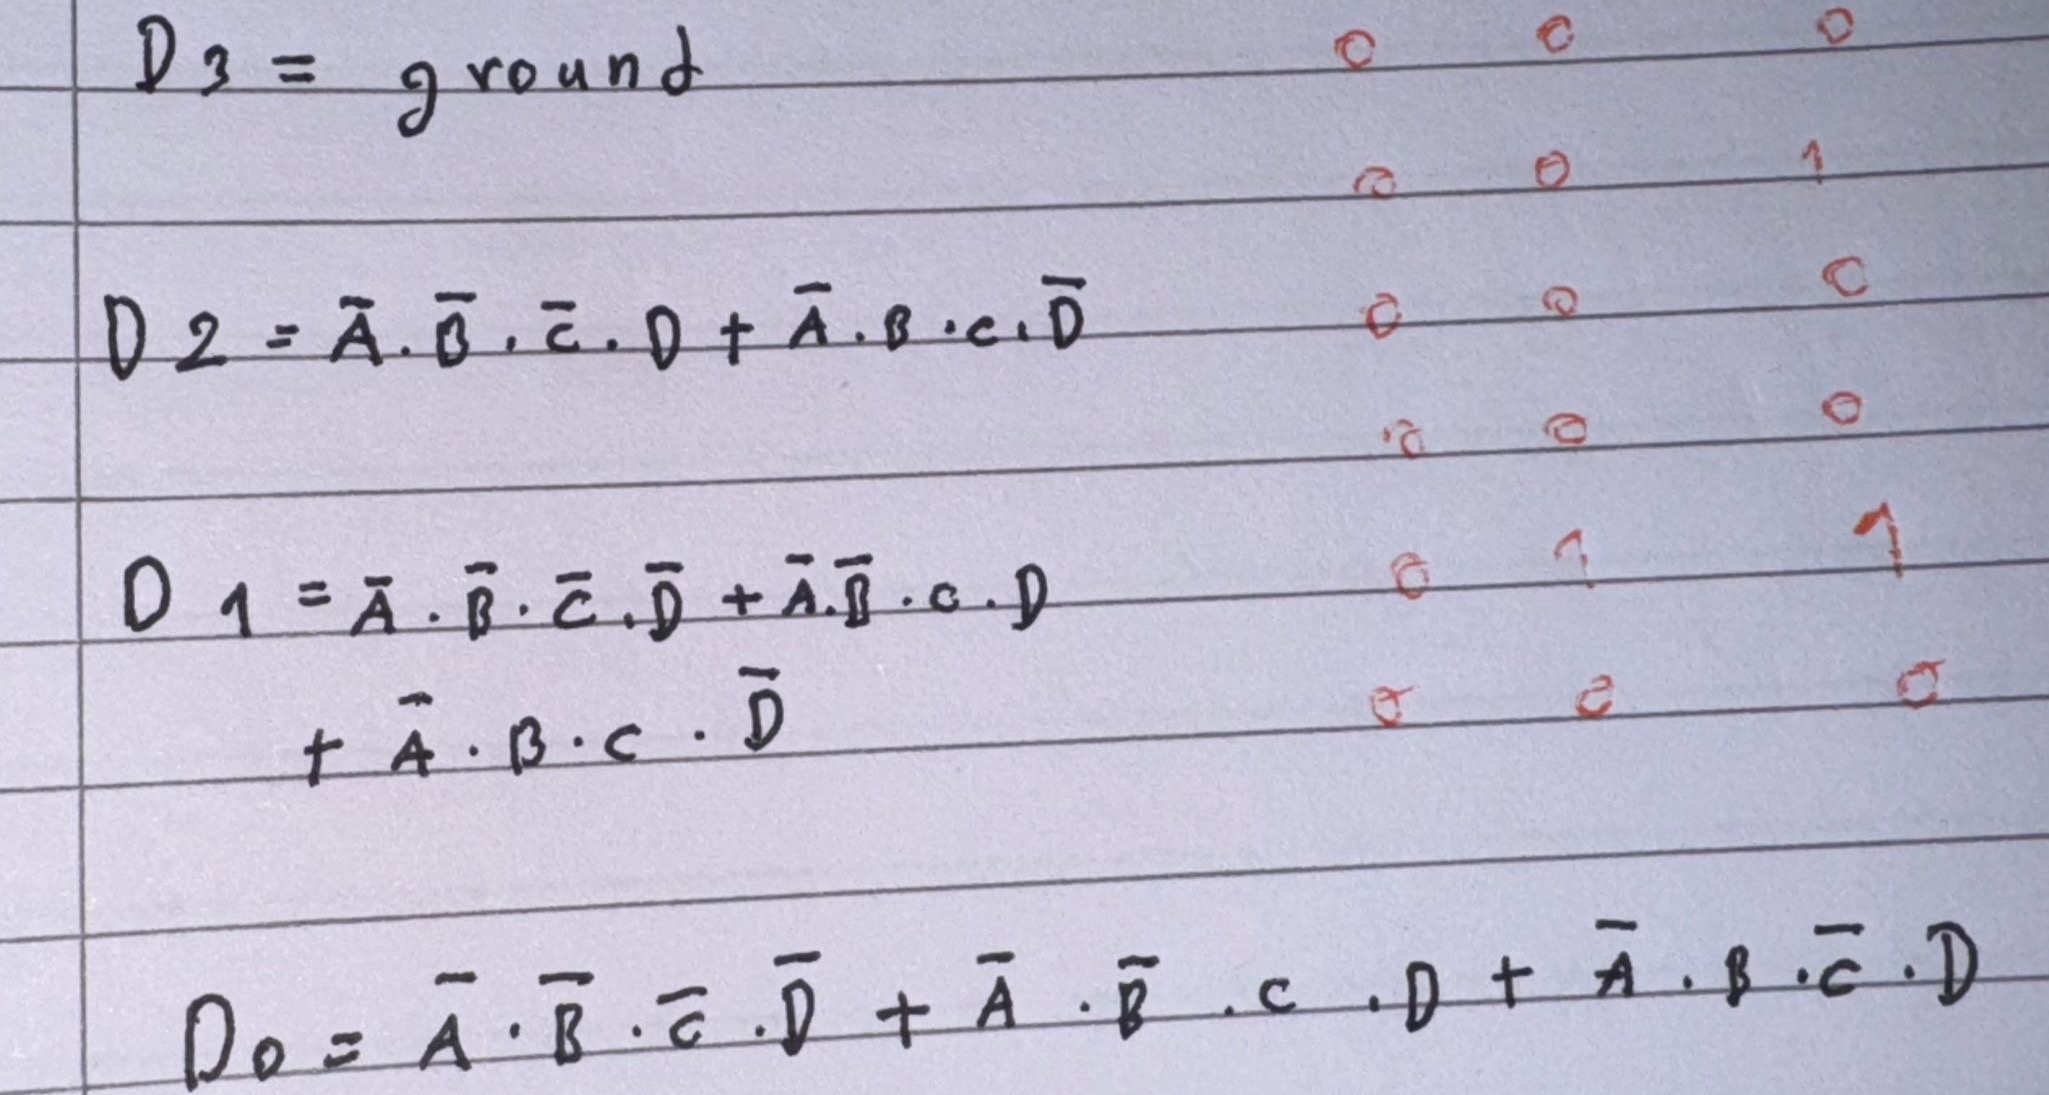 D3 = ground 0 0 0
0 0 1
D2 = A̅.B̅.C̅.D + A̅.B.C.D̅ 0 0 0
0 0 0
D1 = A̅.B̅.C̅.D̅ + A̅.B̅.C.D 0 1 1
+ A̅.B.C.D̅ 0 0 0
D0 = A̅.B̅.C̅.D̅ + A̅.B̅.C.D + A̅.B.C̅.D